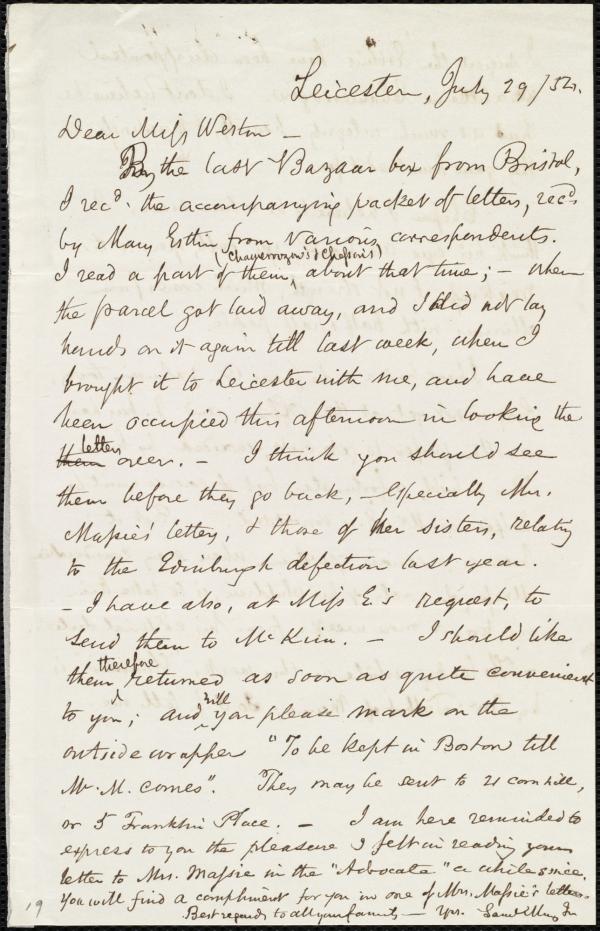 Leicester, July 29/52.
Dear Miss Weston –
By the last Bazaar box from Bristol,
I rec'd. the accompanying packet of letters, rec'd
by Mary Estlin from various correspondents.
(Chamerovzow's & Chesson's)
I read a part of them, about that time; – when
the parcel got laid away, and I did not lay
hands on it again till last week, when I
brought it to Leicester with me, and have
been occupied this afternoon in looking the
them letters over. – I think you should see
them before they go back, – especially Mrs.
Massie's letters, & those of her sisters, relating
to the Edinburgh defection last year.
– I have also, at Miss E.'s request, to
send them to McKim. – I should like
them therefore returned as soon as quite convenient
to you; and will you please mark on the
outside wrapper "To be kept in Boston till
Mr. M. comes". They may be sent to 21 Cornhill,
or 5 Franklin Place. – I am here reminded to
express to you the pleasure I felt in reading your
letter to Mrs. Massie in the "Advocate" a while since.
You will find a compliment for you in one of Mrs. Massie's letters.
Best regards to all your family – Yrs. Saml May Jr
19